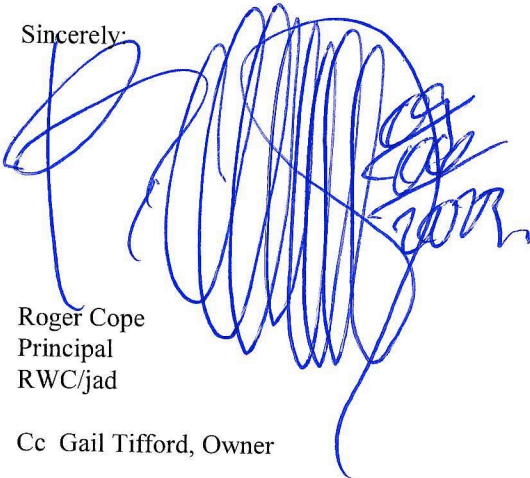 Sincerely:
Roger Cope
Principal
RWC/jad
Cc Gail Tifford, Owner